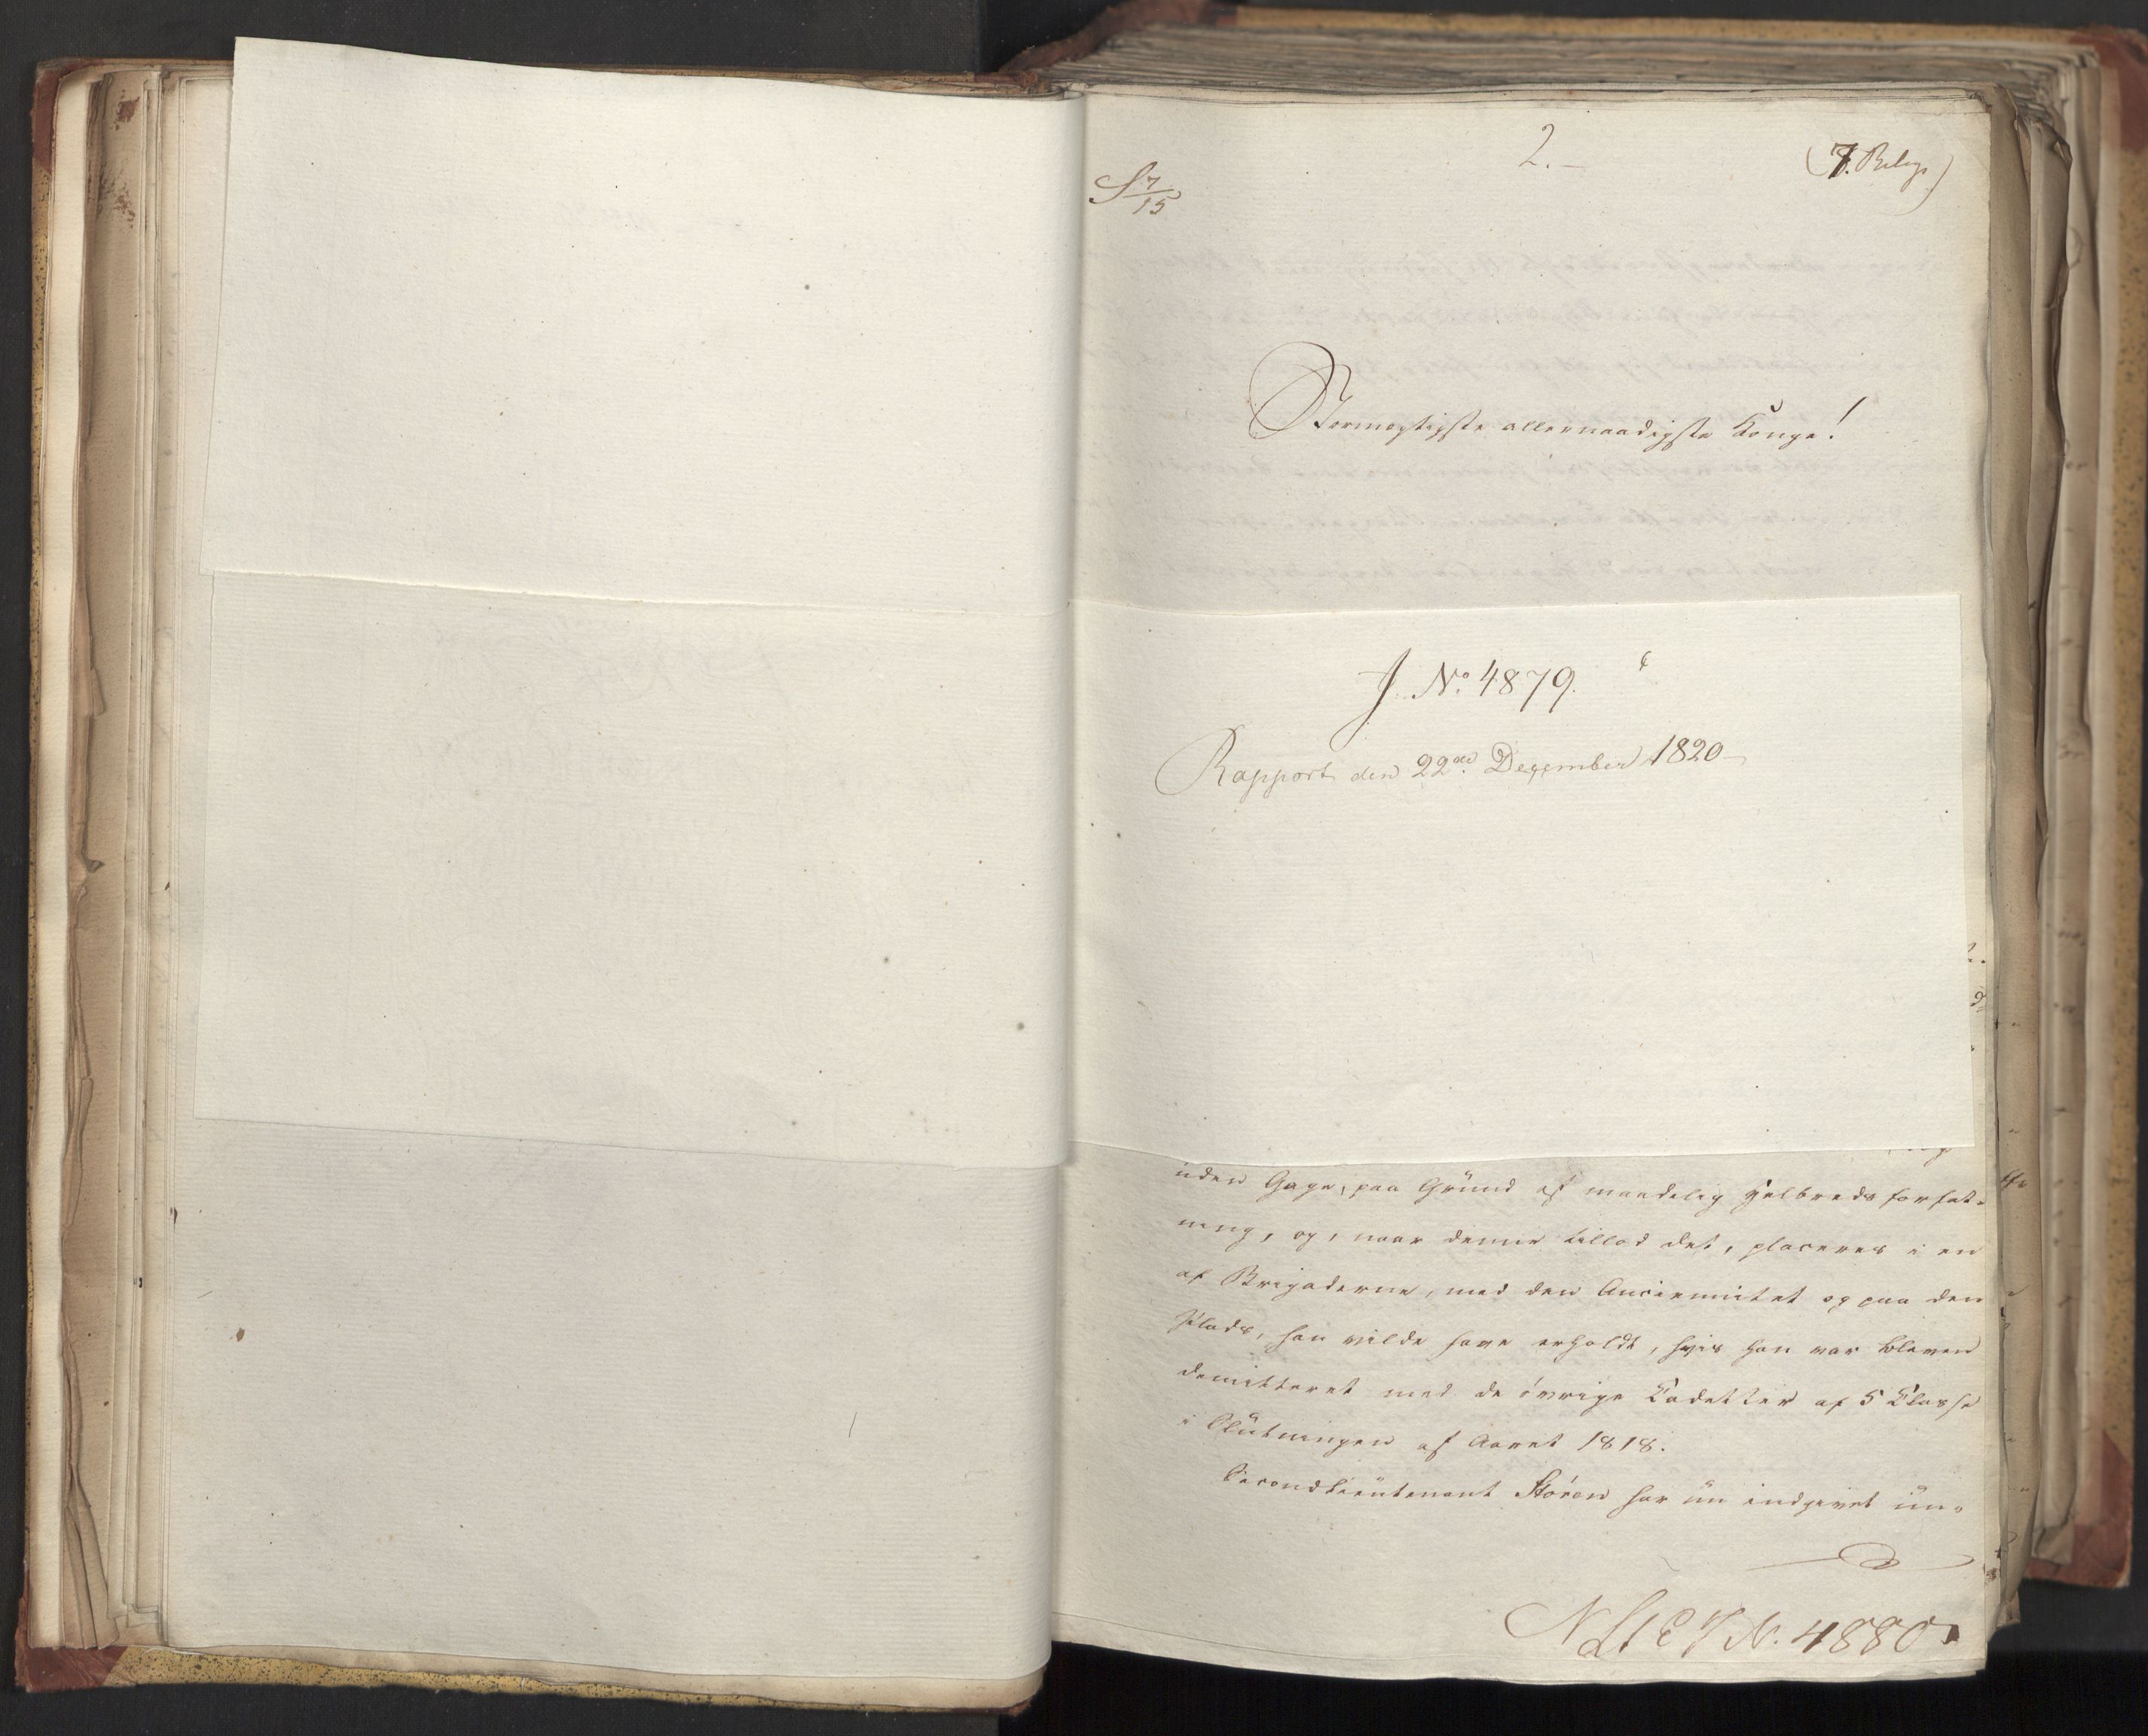 2.
(7. Bilag)
S 7/15
Stormægtigste allernaadigste Konge!
J. No. 4879.
Rapport den 22de December 1820
uden Gage, paa Grund af maadelig Helbredsforfat-
ning, og, naar denne tillod det, placeres i en
af Brigaderne, med den Anciennitet og paa den
Plads, han vilde have erholdt, hvis han var bleven
demitteret med de øvrige Cadetter af 5 Classe
i Slutningen af Aaret 1818.
Secondlieutenant Støren har nu indgivet un-
N. 4880